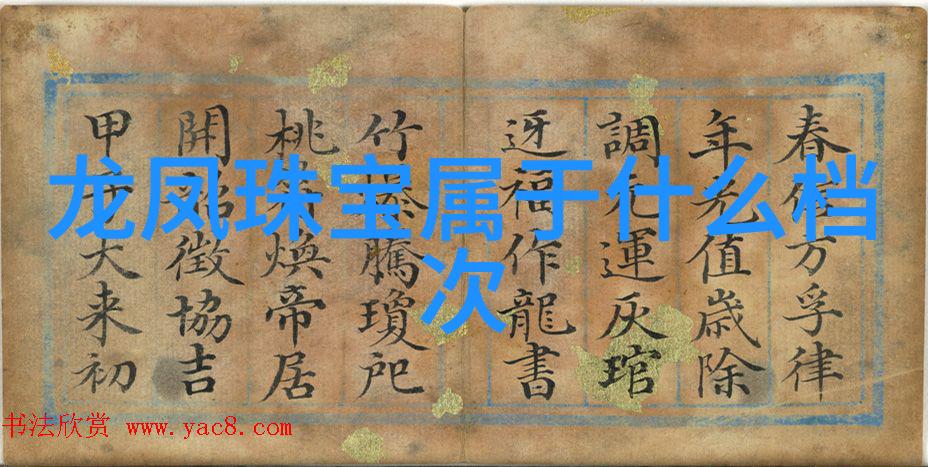 龙凤珠宝属于什么档
次
春方孚律
年光值歲除
調元運灰琯
迓福作龍書
竹騰瓊
桃符煥帝居
開韶徵協吉
甲大来初
书法欣赏 www.yac8.com